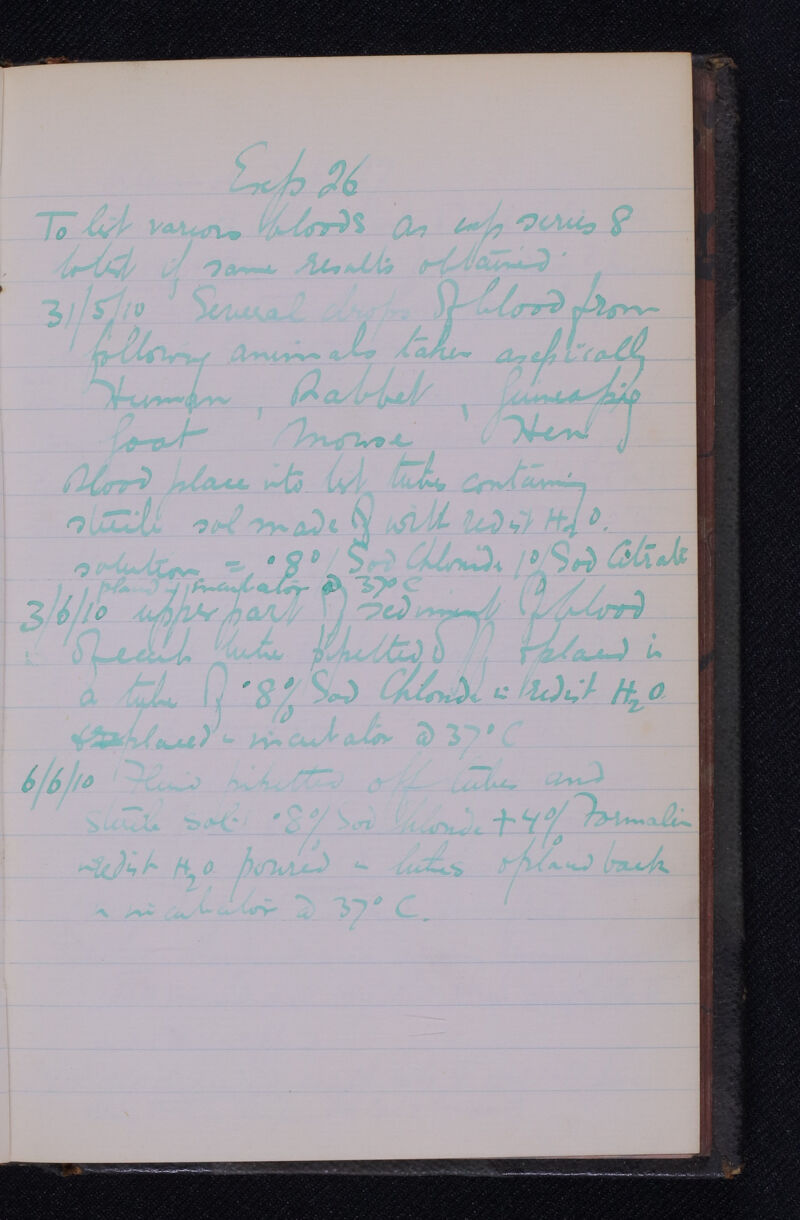 Exp 26
To test various bloods as exp series 8
to test if same results obtained
31/5/10 Several drops of blood from
following animals taken aseptically
Human, Rabbit, Guinea pig
Goat Mouse Hen
Blood place into test tubes containing
sterile sol made of with redist H2O.
solution = .8% Sod Chloride 1% Sod Citrate
placed incubator @ 37°C
3/6/10 upper part of sediment of blood
of each tube pipetted off & placed in
a tube of .8% Sod Chloride in redist H2O
& placed in incubator @ 37°C
6/6/10 Fluid pipetted off tubes and
sterile sol: .8% Sod Chloride + 4% Formalin
redist H2O poured in tubes & placed back
in incubator @ 37°C.